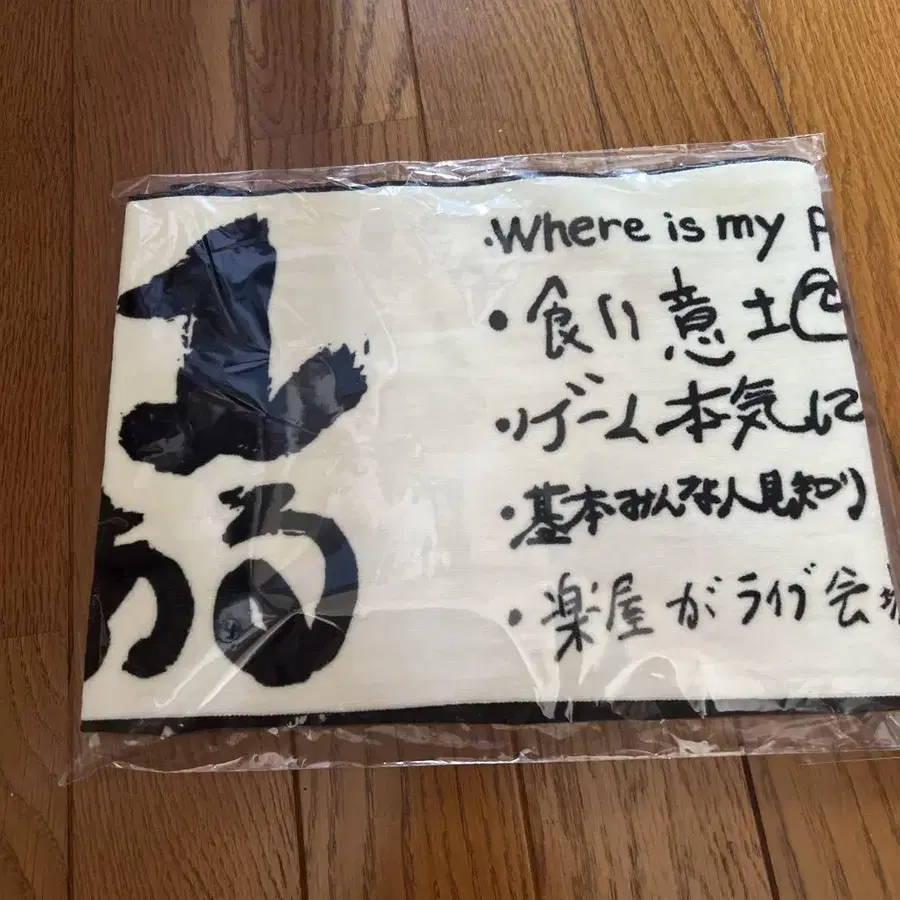 る
・Where is my
・食い意地
・ゲーム本気に
・基本みんな人見知り
・楽屋がライブ会